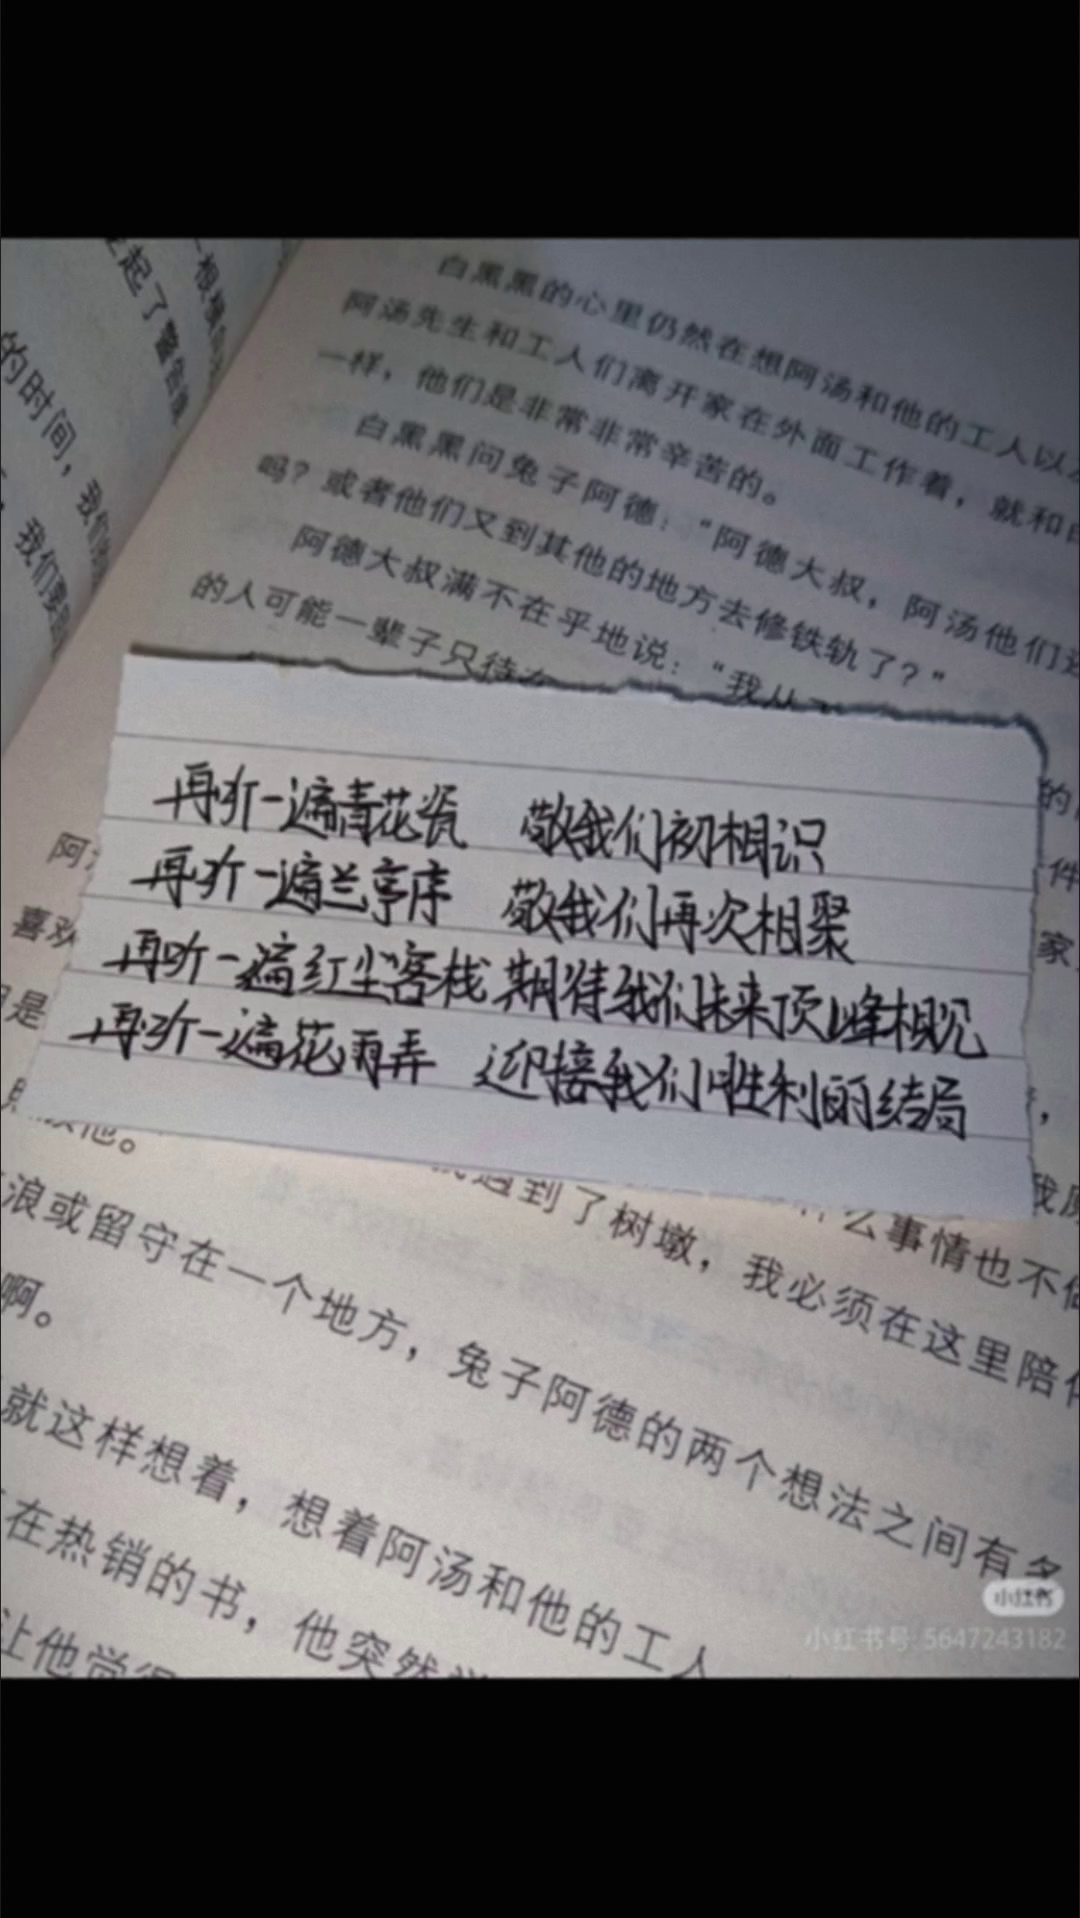 一根横
起了警告
的时间，我们
我们要
白黑黑的心里仍然在想阿汤和他的工人以
阿汤先生和工人们离开家在外面工作着，就和白
一样，他们是非常非常辛苦的。
白黑黑问兔子阿德：“阿德大叔，阿汤他们还
吗？或者他们又到其他的地方去修铁轨了？”
阿德大叔满不在乎地说：“我从
的人可能一辈子只待在
再听一遍青花瓷 敬我们初相识
再听一遍兰亭序 敬我们再次相聚
再听一遍红尘客栈 期待我们未来顶峰相见
再听一遍花雨弄 迎接我们胜利的结局
的
件
家
阿
喜欢
是
他。
就遇到了树墩，我必须在这里陪
什么事情也不做
我愿
浪或留守在一个地方，兔子阿德的两个想法之间有多
啊。
就这样想着，想着阿汤和他的工人
在热销的书，他突然
让他觉得
小红书
小红书号: 5647243182